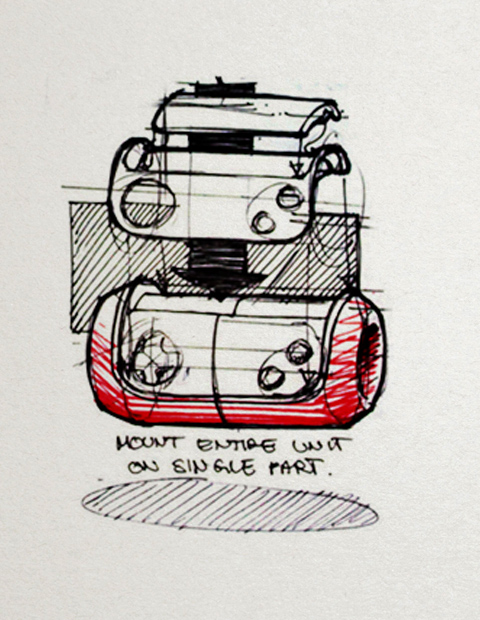 MOUNT ENTIRE UNIT
ON SINGLE PART.